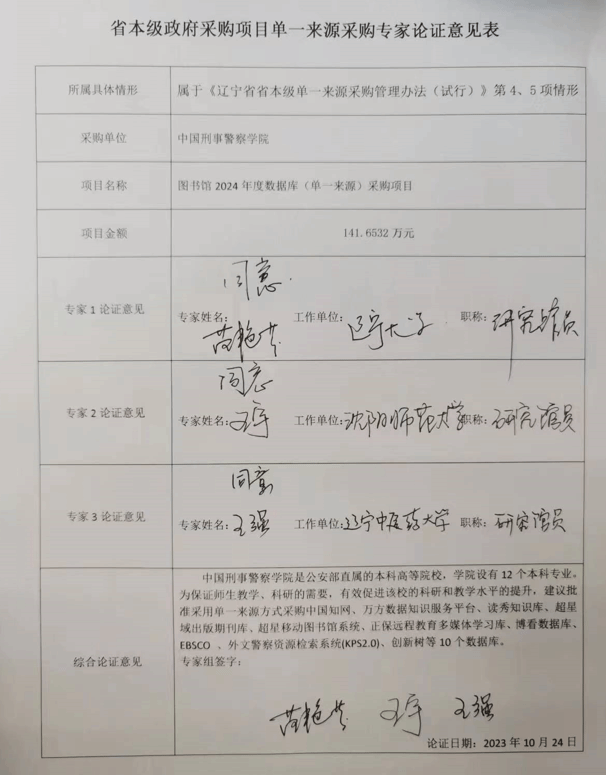 省本级政府采购项目单一来源采购专家论证意见表
所属具体情形 属于《辽宁省省本级单一来源采购管理办法（试行）》第 4、5 项情形
采购单位 中国刑事警察学院
项目名称 图书馆 2024 年度数据库（单一来源）采购项目
项目金额 141.6532 万元
同意
专家 1 论证意见 专家姓名: 工作单位: 辽宁大学 职称: 研究馆员
同意
专家 2 论证意见 专家姓名: 王宇 工作单位: 沈阳师范大学 职称: 研究馆员
同意
专家 3 论证意见 专家姓名: 王强 工作单位: 辽宁中医药大学 职称: 研究馆员
中国刑事警察学院是公安部直属的本科高等院校，学院设有 12 个本科专业。
为保证师生教学、科研的需要，有效促进该校的科研和教学水平的提升，建议批
准采用单一来源方式采购中国知网、万方数据知识服务平台、读秀知识库、超星
域出版期刊库、超星移动图书馆系统、正保远程教育多媒体学习库、博看数据库、
EBSCO 、外文警察资源检索系统(KPS2.0)、创新树等 10 个数据库。
综合论证意见 专家组签字:
王宇 王强
论证日期: 2023 年 10 月 24 日